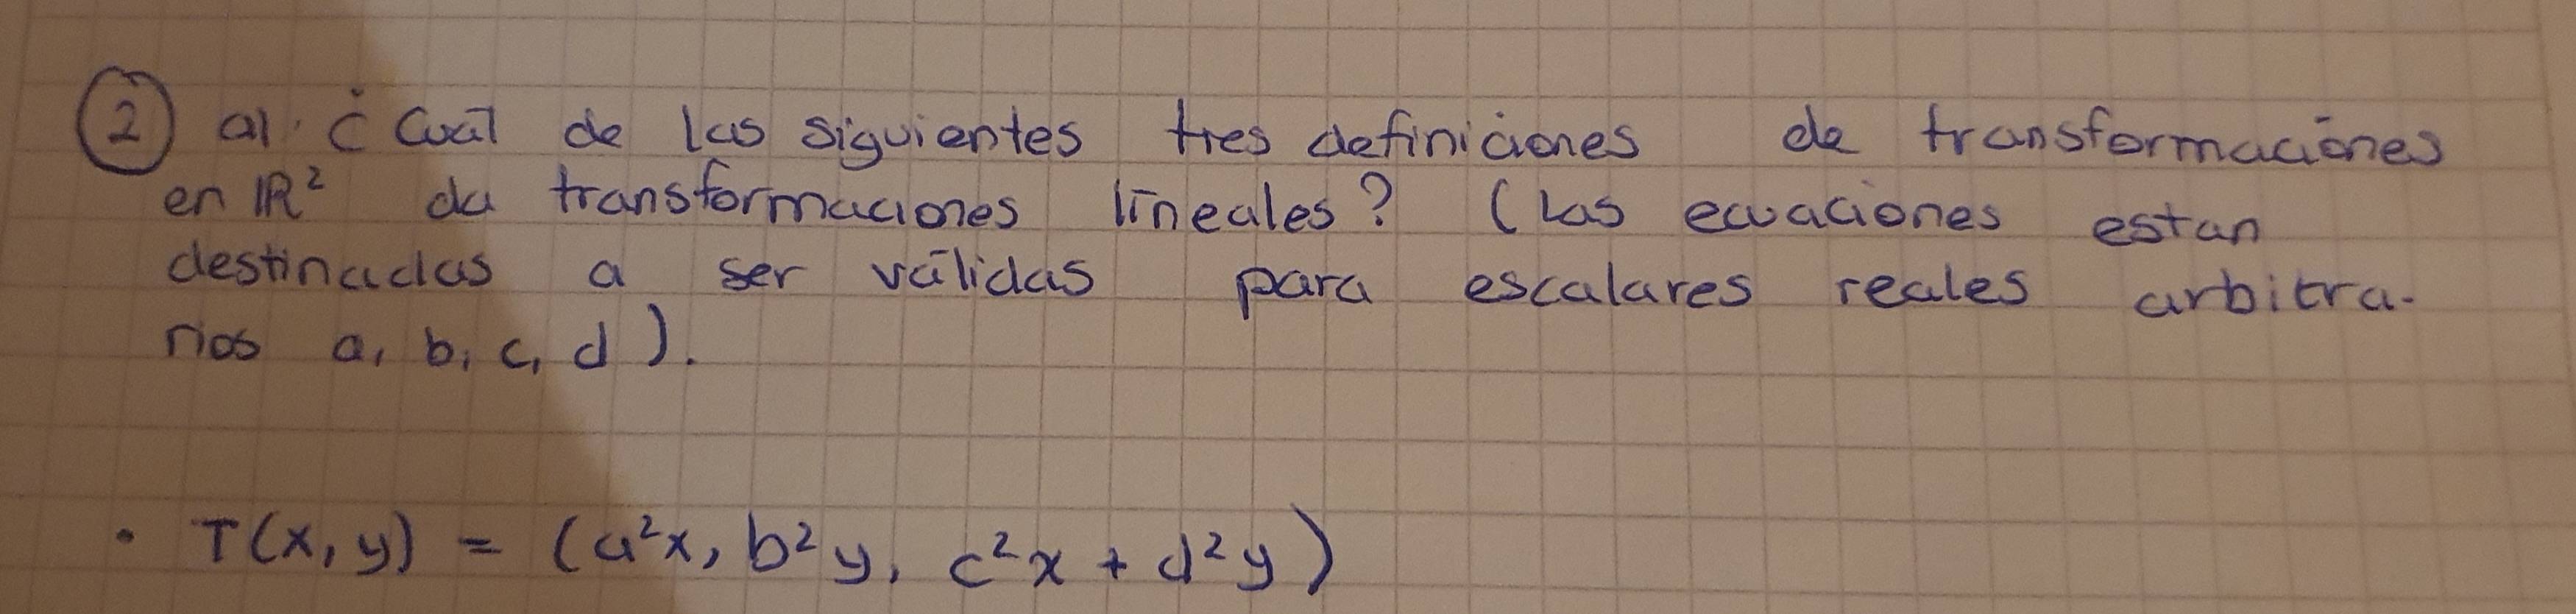 ② a). ¿ Cuál de las siguientes tres definiciones de transformaciones
en ℝ² da transformaciones lineales? (Las ecuaciones estan
destinadas a ser válidas para escalares reales arbitra-
rios a, b, c, d ).
• T(x, y) = (a²x, b²y, c²x + d²y)